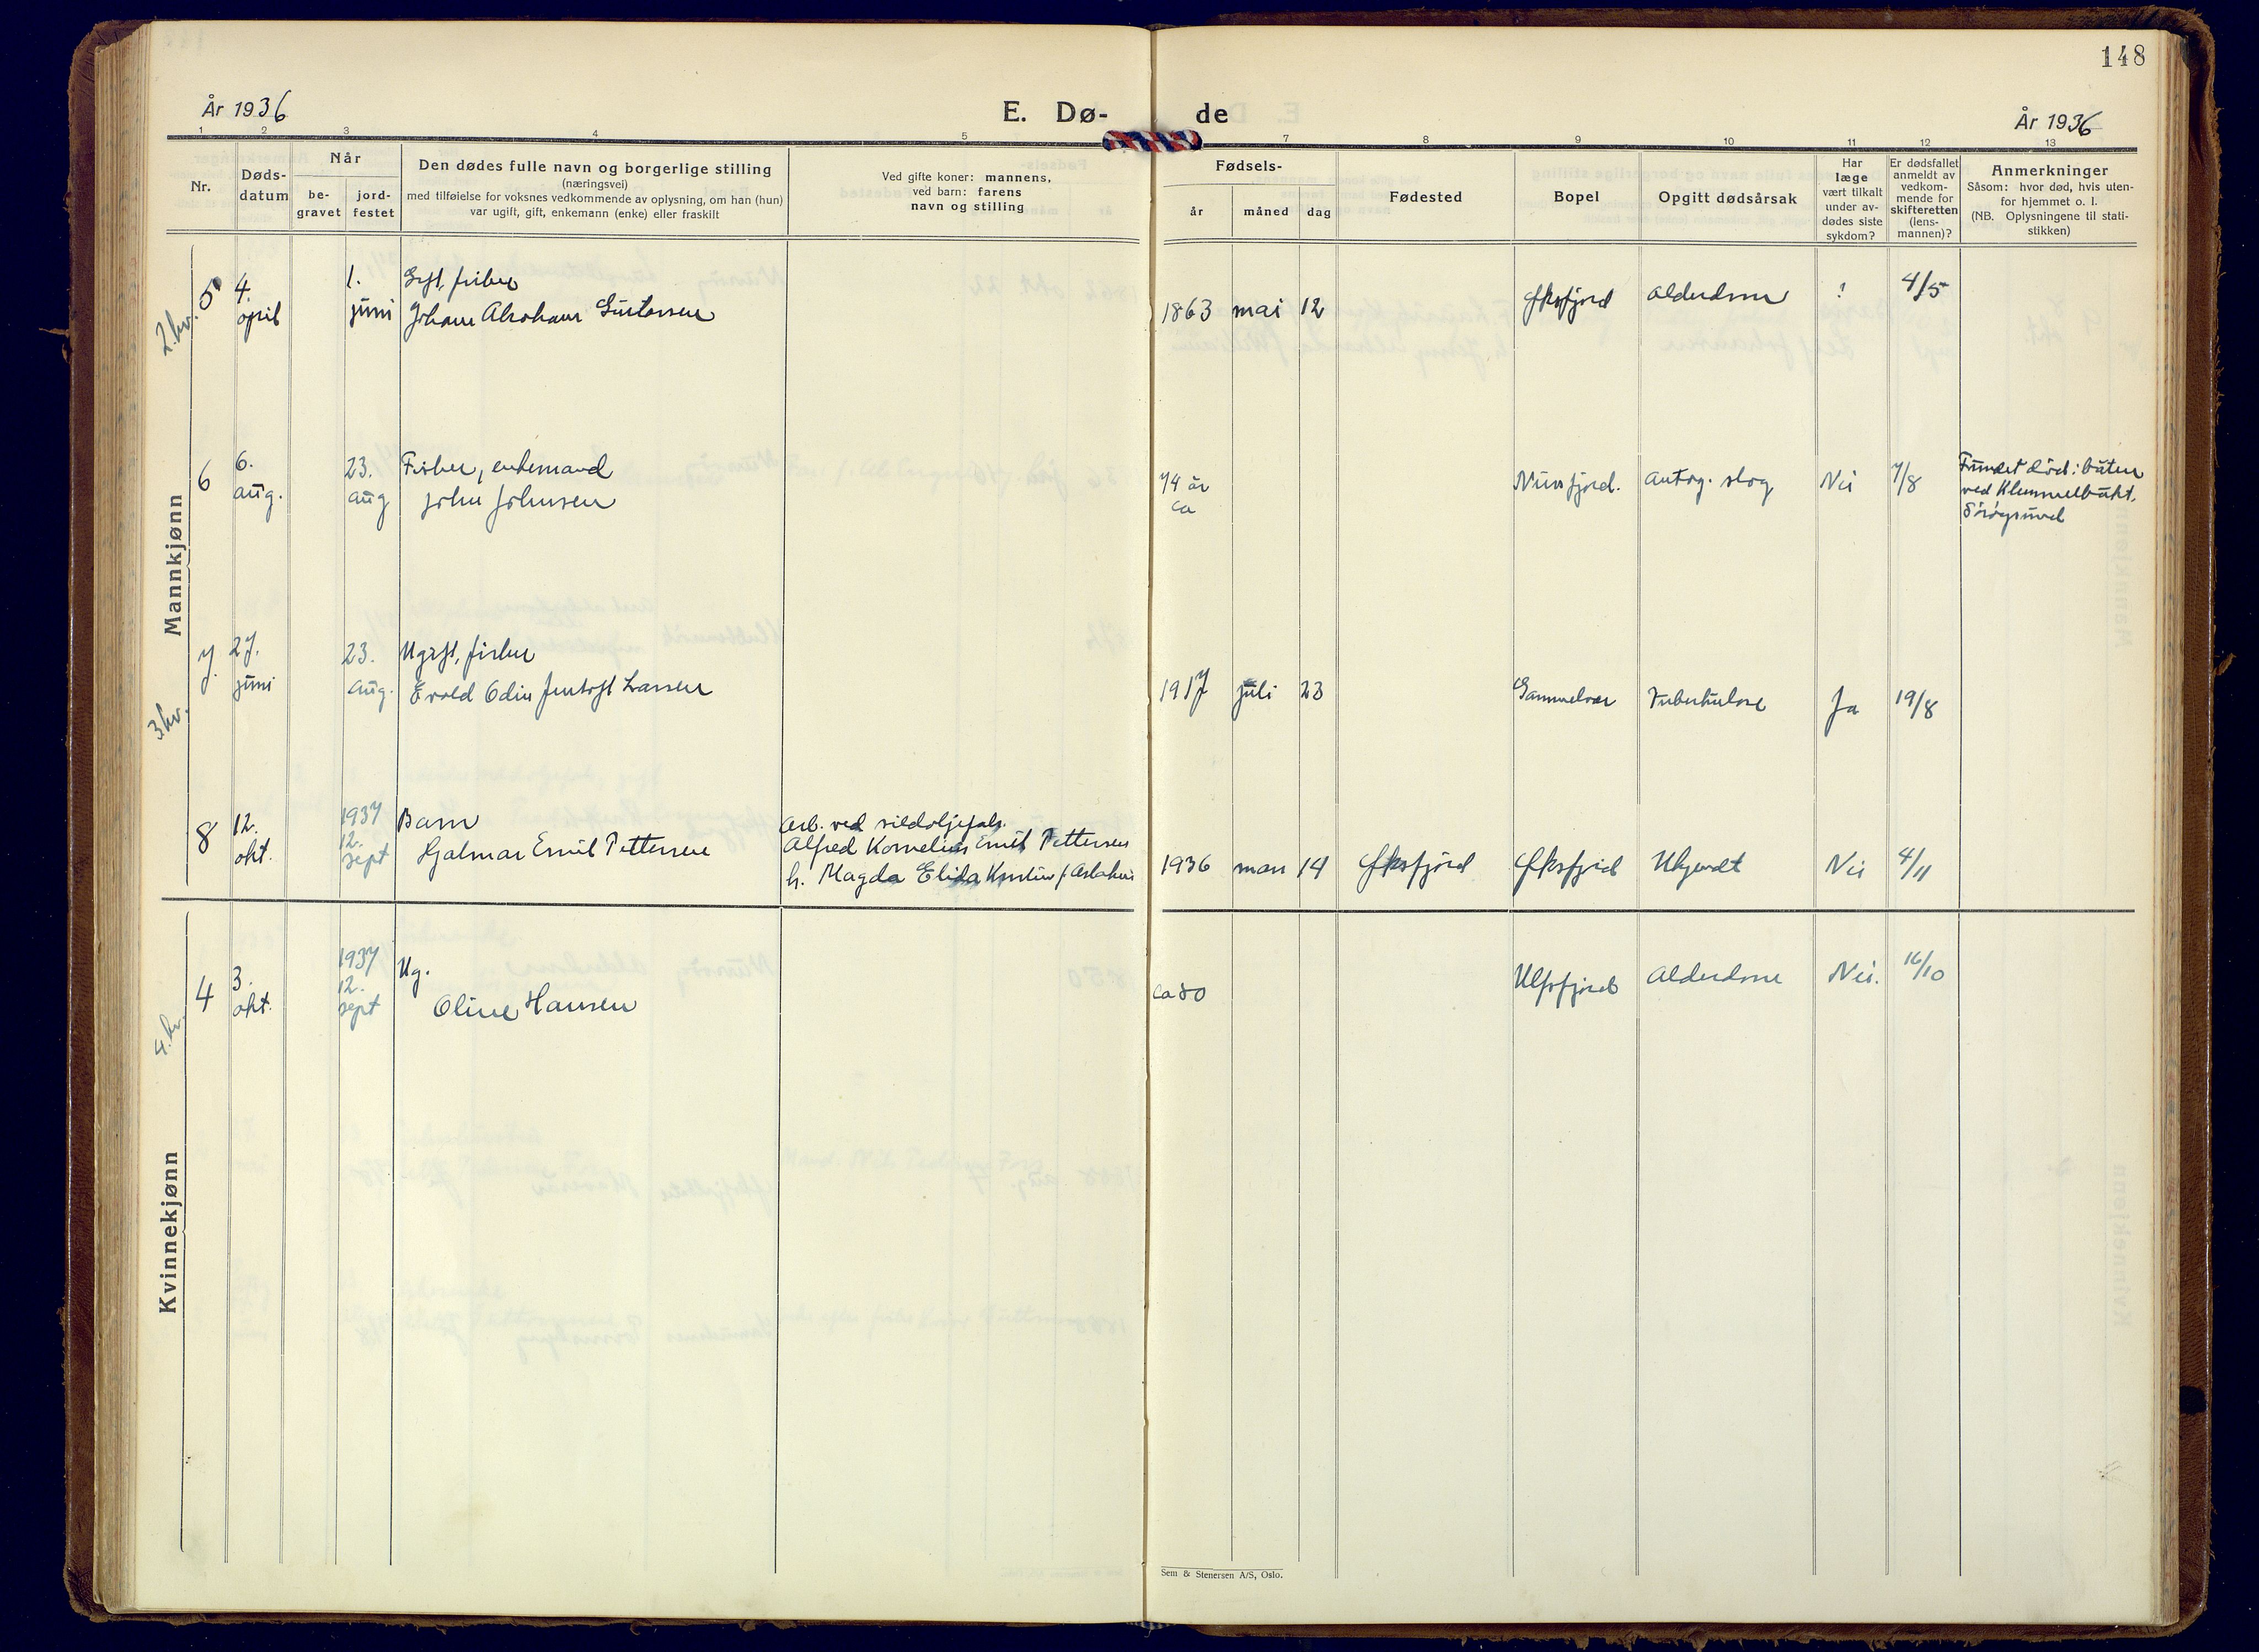 148
År 1936
E. Dø-
de
År 1936
1 2 3 4 5 7 8 9 10 11 12 13
Nr.
Døds-
datum
Når
be-
gravet
jord-
festet
Den dødes fulle navn og borgerlige stilling
(næringsvei)
med tilføielse for voksnes vedkommende av oplysning, om han (hun)
var ugift, gift, enkemann (enke) eller fraskilt
Ved gifte koner: mannens,
ved barn: farens
navn og stilling
Fødsels-
år
måned
dag
Fødested
Bopel
Opgitt dødsårsak
Har
læge
vært tilkalt
under av-
dødes siste
sykdom?
Er dødsfallet
anmeldt av
vedkom-
mende for
skifteretten
(lens-
mannen)?
Anmerkninger
Såsom: hvor død, hvis uten-
for hjemmet o. l.
(NB. Oplysningene til stati-
stikken)
Mannkjønn
2. kv.
5 4. april 1. juni Gift, fisker
Johan Abraham Gustavsen 1863 mai 12 Øksfjord Alderdom ? 4/5
6 6. aug. 23. aug Fisker, enkemand
John Johnsen 74 år ca Nuvsfjord. Antag. slag Nei 7/8 Fundet død i båten
ved Klemmelbukt.
Sørøysund
3. kv.
7. 27. juni 23. aug. Ugift, fisker
Evald Odin Jentoft Larsen 1917 juli 23 Gammelvær Tuberkulose Ja 19/8
8 12. okt. 1937 12. sept Barn
Hjalmar Emil Pettersen Arb. ved sildoljefabr.
Alfred Kornelius Emil Pettersen
h. Magda Elida 1936 mars 14 Øksfjord Øksfjord Ukjendt Nei 4/11
Kvinnekjønn
4. kv.
4 3. okt. 1937 12. sept Ug.
Oline Hansen ca 80 Ulfsfjord Alderdom Nei. 16/10
Sem & Stenersen A/S, Oslo.